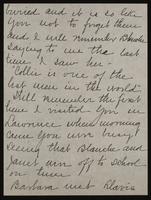 buried and it is so like
you not to forget them
and I will remember Blanche
saying to me the last
time I saw her -
"Collie is one of the
best men in the world"
I still remember the first
time I visited you in
Lawrence when morning
came you were busy
seeing that Blanche and
Janet were off to school
on time
Barbara met Blavis